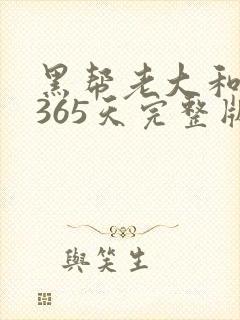 黑帮老大和
365天完整版
與笑生